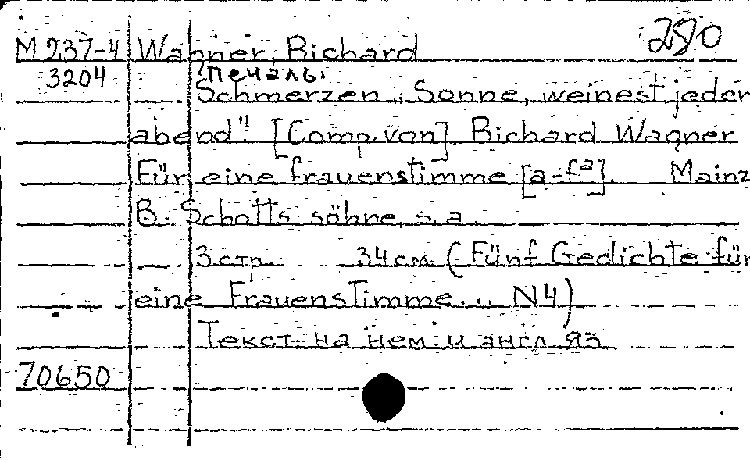 280
M 237-4 Wagner, Richard
3204 [Печаль.
Schmerzen. "Sonne, weinest jeden
abend" [Comp. von] Richard Wagner
Für eine frauenstimme [a-f²]. Mainz
B. Schott's söhne, s. a.
3 стр. 34 см. (Fünf Gedichte für
eine Frauenstimme... N4)
Текст на нем. и англ. яз.
70650